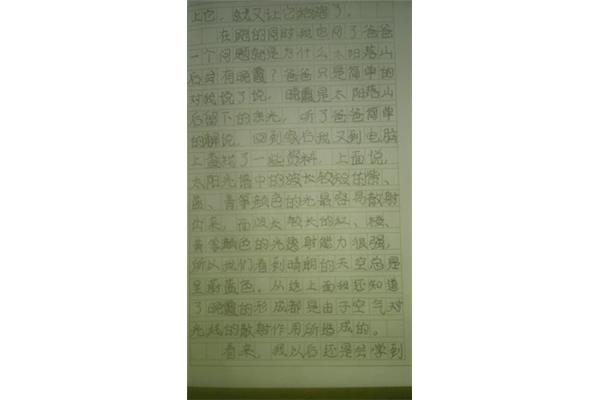 上它，就又让它跑了。
在跑的同时我也问了爸爸
一个问题就是为什么太阳落山
后会有晚霞？爸爸只是简单的
对我说了说，晚霞是太阳落山
后留下的余光，听了爸爸简单
的解说，回到家后我又到电脑
上查找了一些资料，上面说，
太阳光谱中的波长较短的紫、
蓝、青等颜色的光最容易散射
出来，而波长较长的红、橙、
黄等颜色的光透射能力很强，
所以我们看到晴朗的天空总是
呈蔚蓝色。从这上面我还知道
了晚霞的形成都是由于空气对
光线的散射作用所造成的。
看来，我以后还是会学到